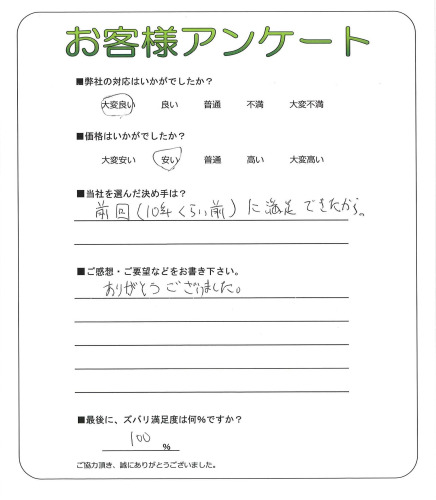 お客様アンケート
■弊社の対応はいかがでしたか？
大変良い 良い 普通 不満 大変不満
■価格はいかがでしたか？
大変安い 安い 普通 高い 大変高い
■当社を選んだ決め手は？
前回(10年くらい前)に満足できたから。
■ご感想・ご要望などをお書き下さい。
ありがとうございました。
■最後に、ズバリ満足度は何％ですか？
100 ％
ご協力頂き、誠にありがとうございました。